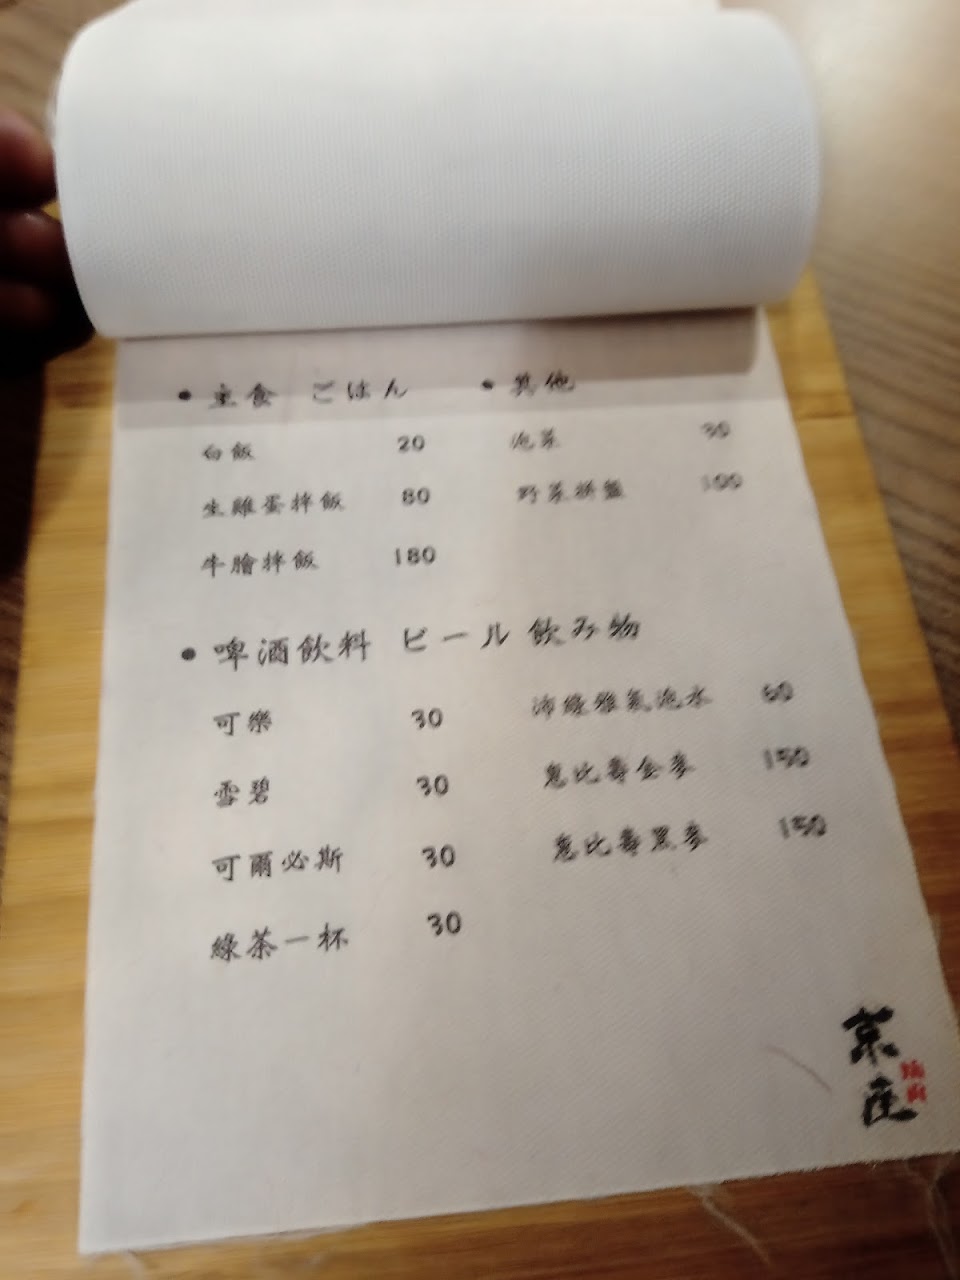 • 主食 ごはん
白飯 20
生雞蛋拌飯 80
牛膾拌飯 180
• 其他
泡菜 30
野菜拼盤 100
• 啤酒飲料 ビール 飲み物
可樂 30
雪碧 30
可爾必斯 30
綠茶一杯 30
沛綠雅氣泡水 60
惠比壽金麥 150
惠比壽黑麥 150
京
座